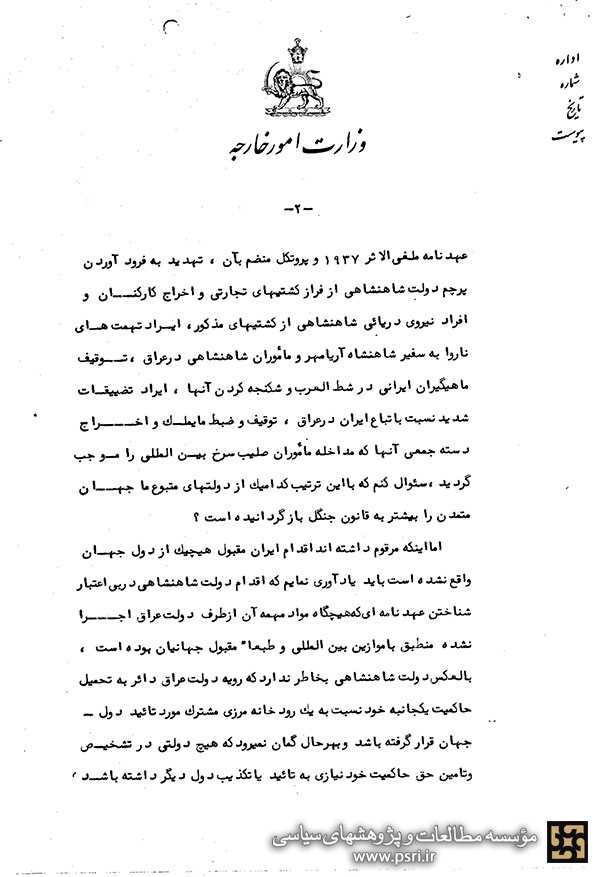 اداره
شماره
تاریخ
پیوست
وزارت امور خارجه
-۲-
عهدنامه ملغی الاثر ۱۹۳۷ و پروتکل منضم بآن ، تهدید به فرود آوردن
پرچم دولت شاهنشاهی از فراز کشتیهای تجارتی و اخراج کارکنان و
افراد نیروی دریائی شاهنشاهی از کشتیهای مذکور، ایراد تهمت های
ناروا به سفیر شاهنشاه آریامهر و مأموران شاهنشاهی درعراق ، توقیف
ماهیگیران ایرانی در شط العرب و شکنجه کردن آنها ، ایراد تضییقات
شدید نسبت باتباع ایران درعراق ، توقیف و ضبط مایملك و اخراج
دسته جمعی آنها که مداخله مأموران صلیب سرخ بین المللی را موجب
گردید ، سئوال کنم که بااین ترتیب کدامیك از دولتهای متبوع ما جهان
متمدن را بیشتر به قانون جنگل بازگردانیده است ؟
امااینکه مرقوم داشته اند اقدام ایران مقبول هیچیك از دول جهان
واقع نشده است باید یادآوری نمایم که اقدام دولت شاهنشاهی دربی اعتبار
شناختن عهدنامه ای که هیچگاه مواد مهمه آن ازطرف دولت عراق اجرا
نشده منطبق باموازین بین المللی و طبعاً مقبول جهانیان بوده است ،
بالعکس دولت شاهنشاهی بخاطر ندارد که رویه دولت عراق دائر به تحمیل
حاکمیت یکجانبه خود نسبت به یك رودخانه مرزی مشترك مورد تائید دول -
جهان قرار گرفته باشد و بهرحال گمان نمیرود که هیچ دولتی در تشخیص
وتامین حق حاکمیت خود نیازی به تائید یا تکذیب دول دیگر داشته باشد ،
مؤسسه مطالعات و پژوهشهای سیاسی
www.psri.ir